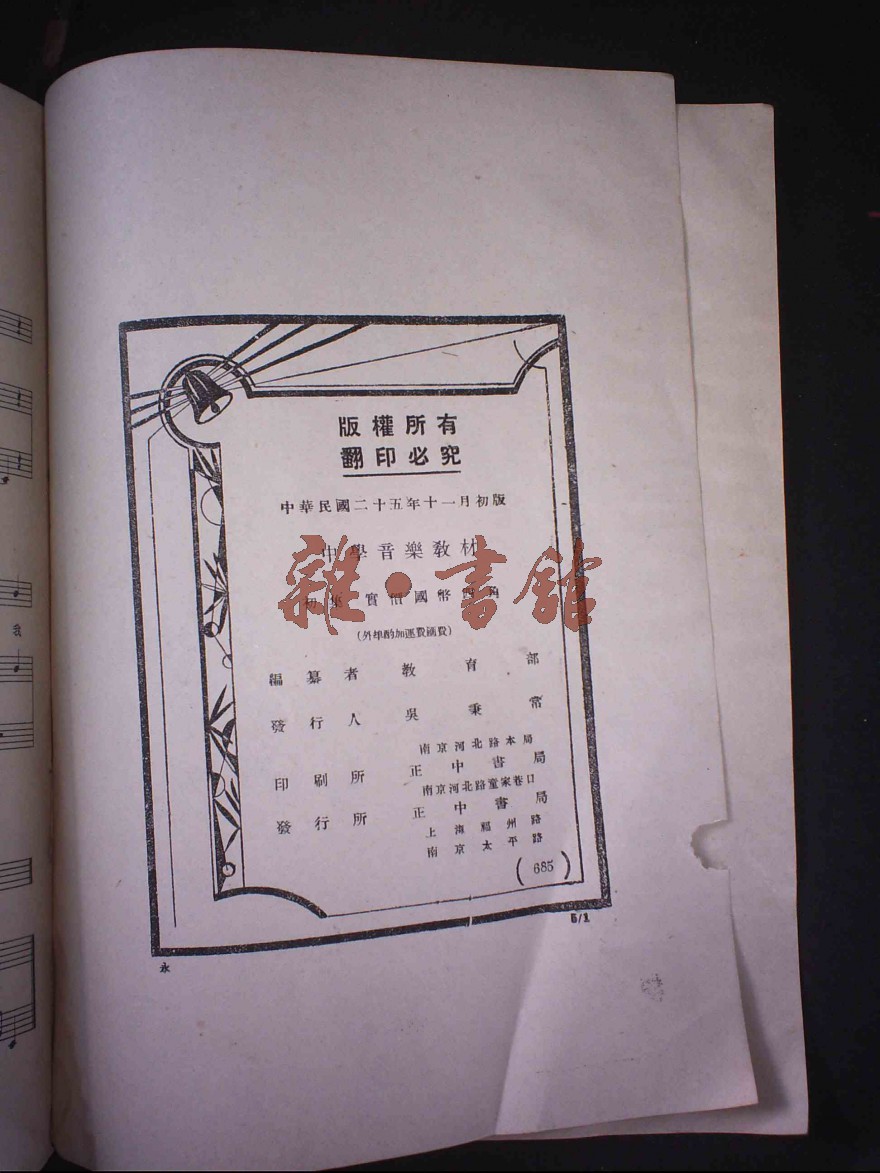 版權所有
翻印必究
中華民國二十五年十一月初版
中學音樂教材
初集 實價國幣四角
(外埠酌加運費匯費)
編纂者 教育部
發行人 吳秉常
南京河北路本局
印刷所 正中書局
南京河北路童家巷口
發行所 正中書局
上海福州路
南京太平路
(685)
5/1
永
我
雜·書館